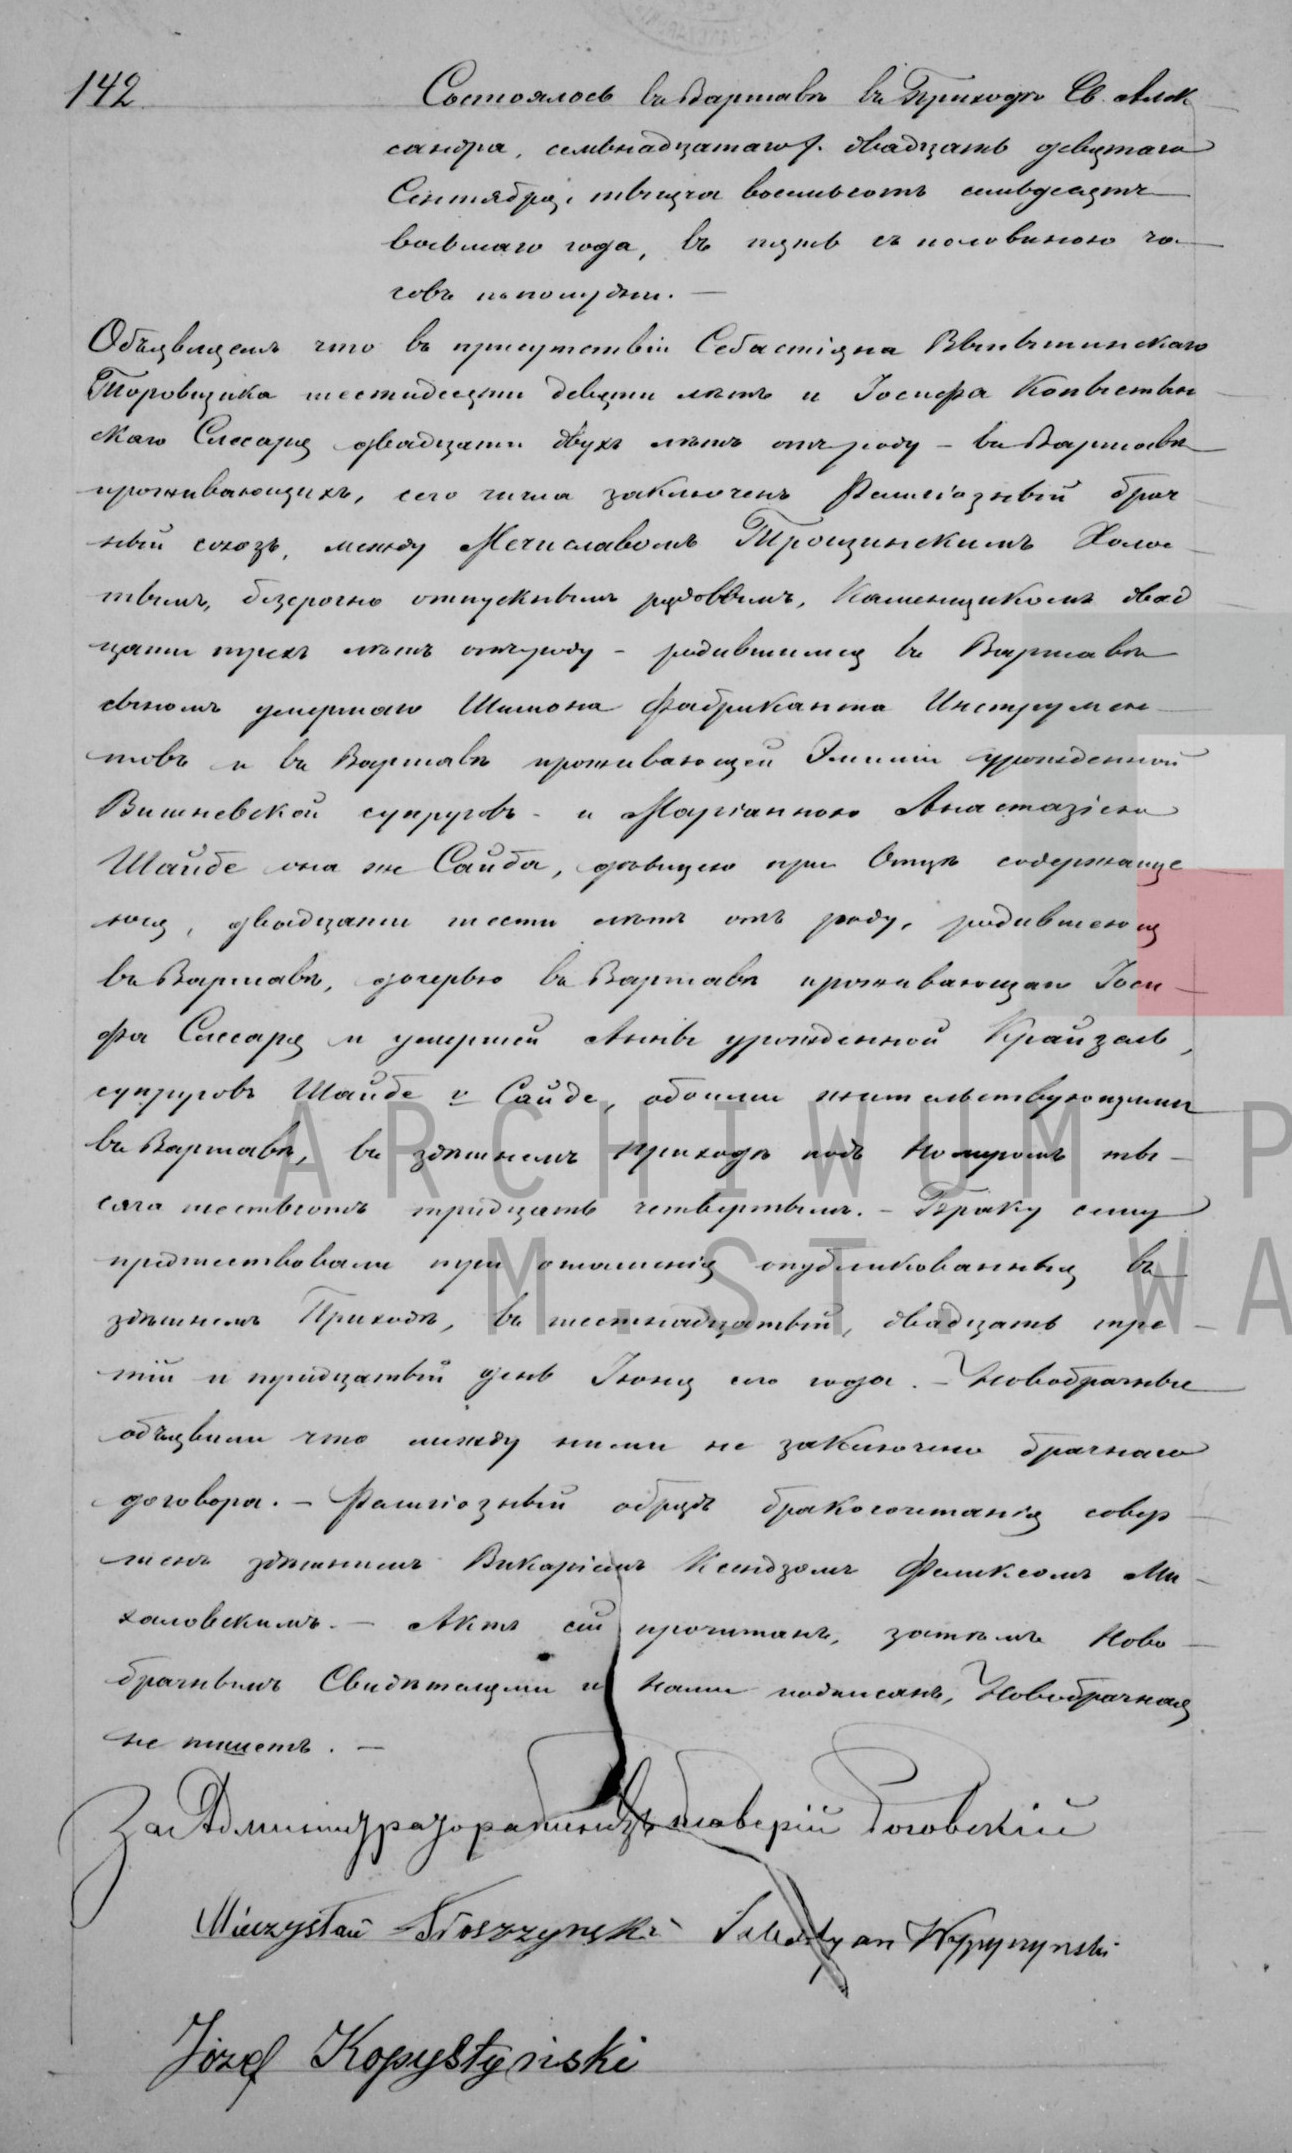 142.
Состоялось въ Варшавѣ въ Приходѣ Св. Алек
сандра, семьнадцатаго /. двадцать девятаго
Сентября, тысяча восемьсотъ семьдесятъ
восьмаго года, въ пять съ половиною ча
совъ пополудни. —
Объявляемъ что въ присутствіи Себастіяна
Торовщика шестидесяти девяти лѣтъ и Іосифа Копыстын
скаго Слесаря двадцати двухъ лѣтъ отъ роду – въ Варшавѣ
проживающихъ, сего числа заключенъ Религіозный брач
ный союзъ, между Мечиславомъ Трощинскимъ Холос
тымъ, безсрочно отпускнымъ рядовымъ, Каменщикомъ двад
цати трехъ лѣтъ отъ роду – родившимся въ Варшавѣ
сыномъ умершаго Шимона Фабриканта Инструмен
товъ и въ Варшавѣ проживающей Эмиліи урожденной
Вишневской супруговъ – и Маріанною Анастазіею
Шайбе она же Сайба, дѣвицею при Отцѣ содержаще
юся, двадцати шести лѣтъ отъ роду, родившеюся
въ Варшавѣ, дочерью въ Варшавѣ проживающаго Іоси
фа Слесаря и умершей Анны урожденной Крайзель,
супруговъ Шайбе v Сайде, обоими жительствующими
въ Варшавѣ, въ здѣшнемъ Приходѣ подъ Номеромъ ты
сяча шестьсотъ тридцать четвертымъ. – Браку сему
предшествовали три оглашенія опубликованныя въ
здѣшнемъ Приходѣ, въ шестнадцатый, двадцать тре
тій и тридцатый день Іюня сего года. – Новобрачные
объявили что между ними не заключено брачнаго
договора. – Религіозный обрядъ бракосочетанія совер
шенъ здѣшнимъ Викаріемъ Ксендзомъ Феликсомъ Ми
халовскимъ. – Актъ сей прочитанъ, затѣмъ Ново
брачнымъ Свидѣтелями и Нами подписанъ, Новобрачная
не пишетъ. —
За Администратора Роговскій
Mieczysław Troszzyński Sebastyan Wypyszynski
Józef Kopystyński
ARCHIWUM P
M. ST. WA